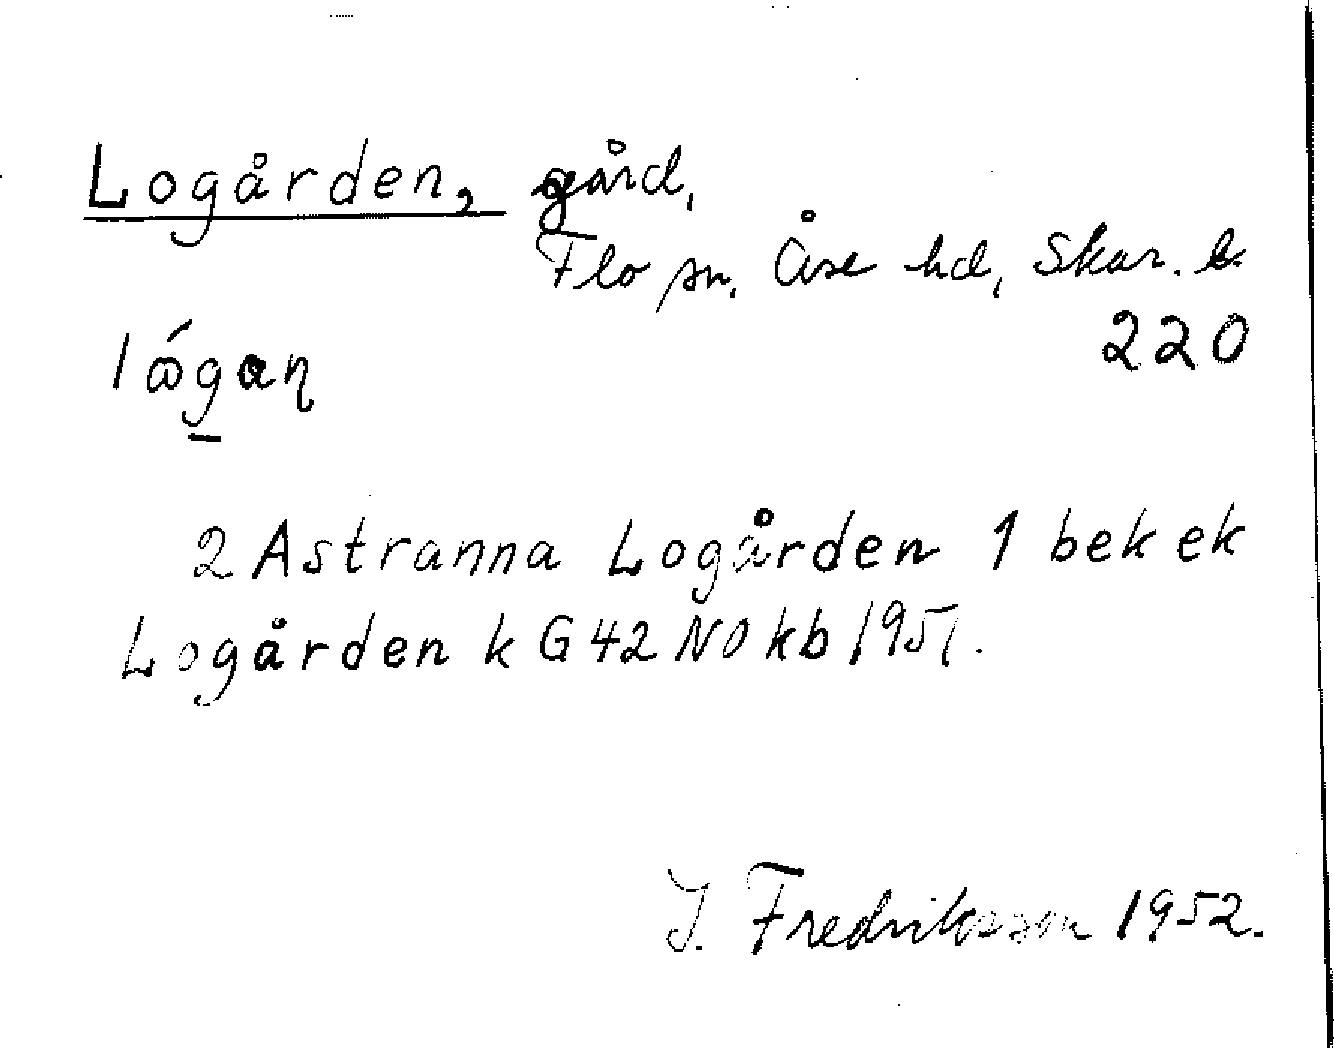 Logården, gård,
Flo sn. Åse hd, Skar. l.
220
2 Astranna Logården 1 bek ek
Logården k G 42 NO kb 1951.
I. Fredriksson 1952.